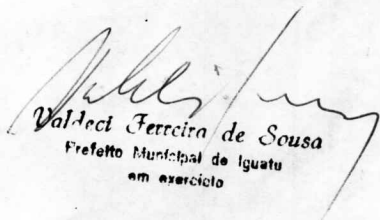 Valdeci Ferreira de Sousa
Prefeito Municipal de Iguatu
em exercício